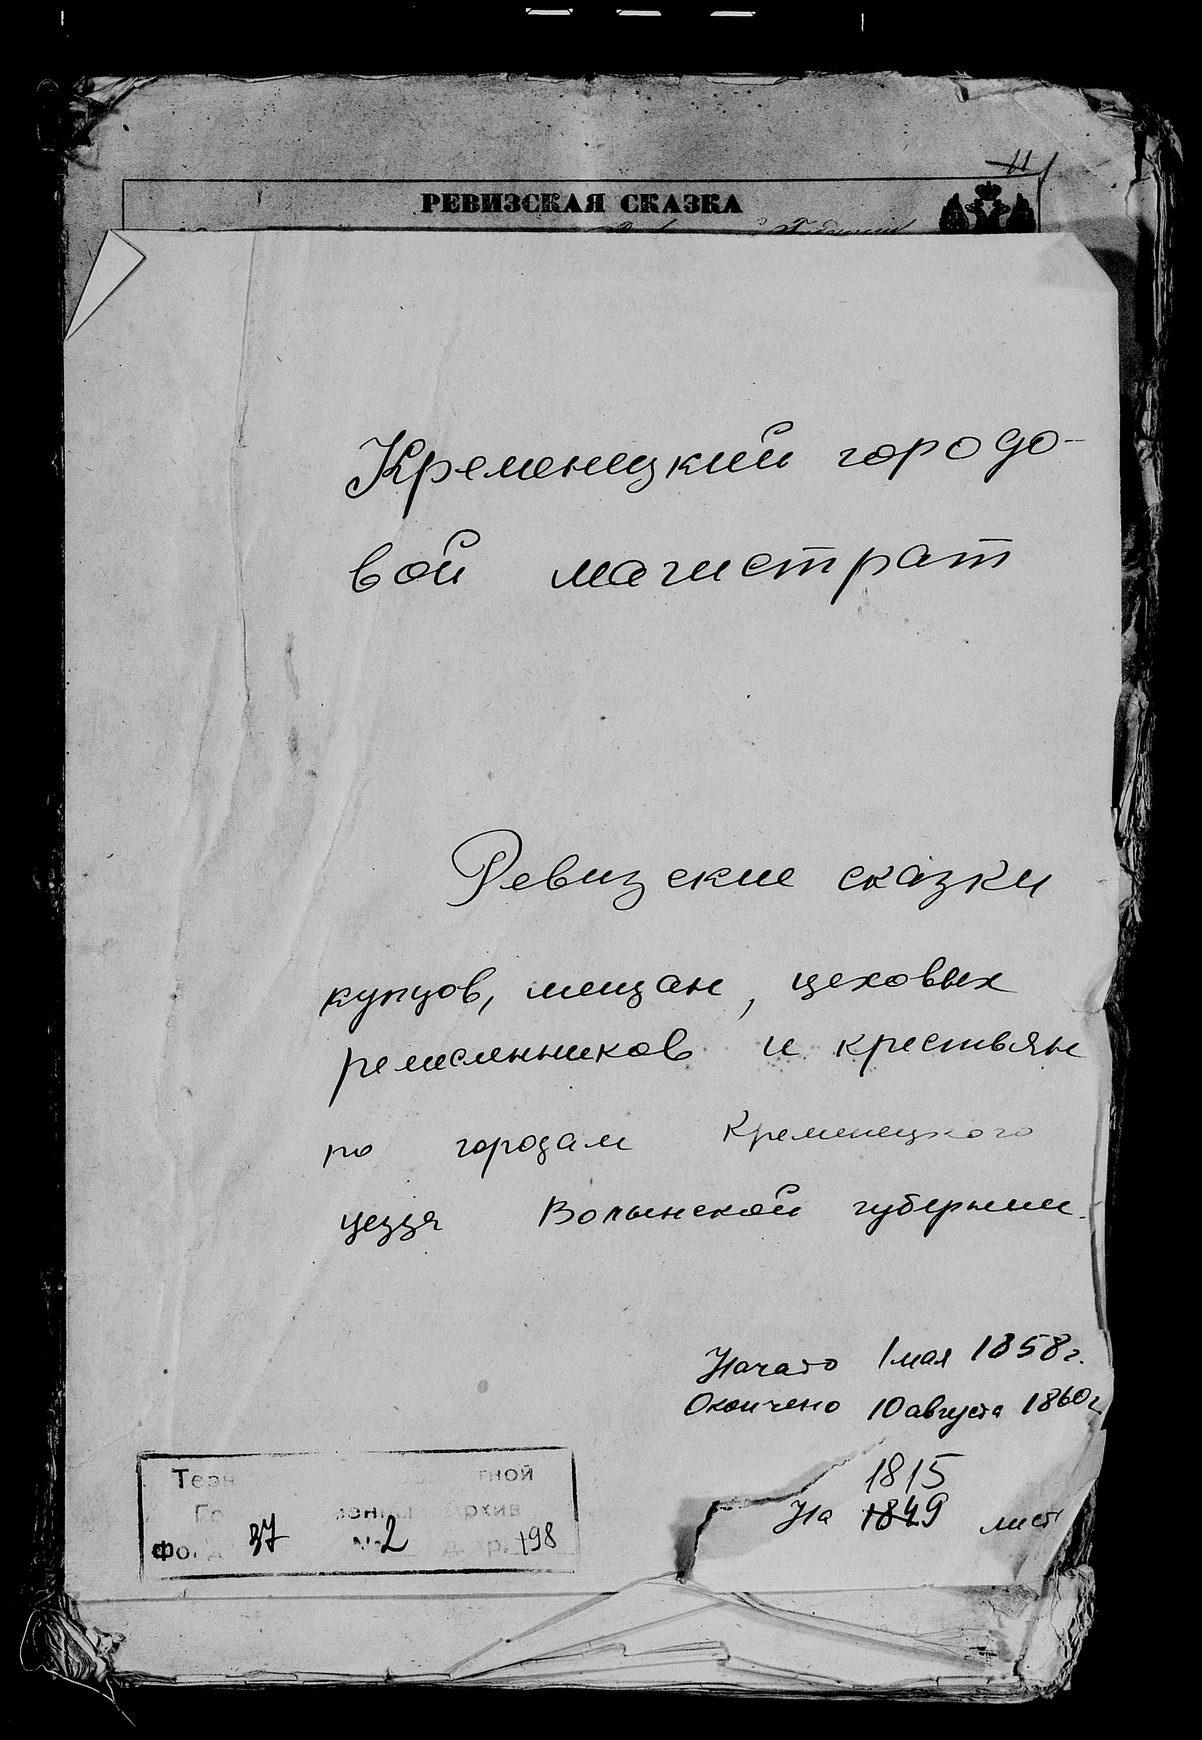 11
РЕВИЗСКАЯ СКАЗКА
Кременецкий городо-
вой магистрат
Ревизские сказки
купцов, мещан, цеховых
ремесленников и крестьян
по городам Кременецкого
уезда Волынской губернии.
Начато 1 мая 1858 г.
Окончено 10 августа 1860 г
1815
На 1849 лист
Терн тной
Го венны рхив
Фонд 37 № 2 д. хр. 198